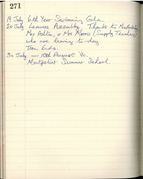 271
19 July 6th Year Swimming Gala.
20 July Leavers Assembly. Thanks to
Mrs & Mrs Moore (Supply Teacher)
who are leaving to-day
Term Ends.
30 July — 10th August
Montpelier Summer School.